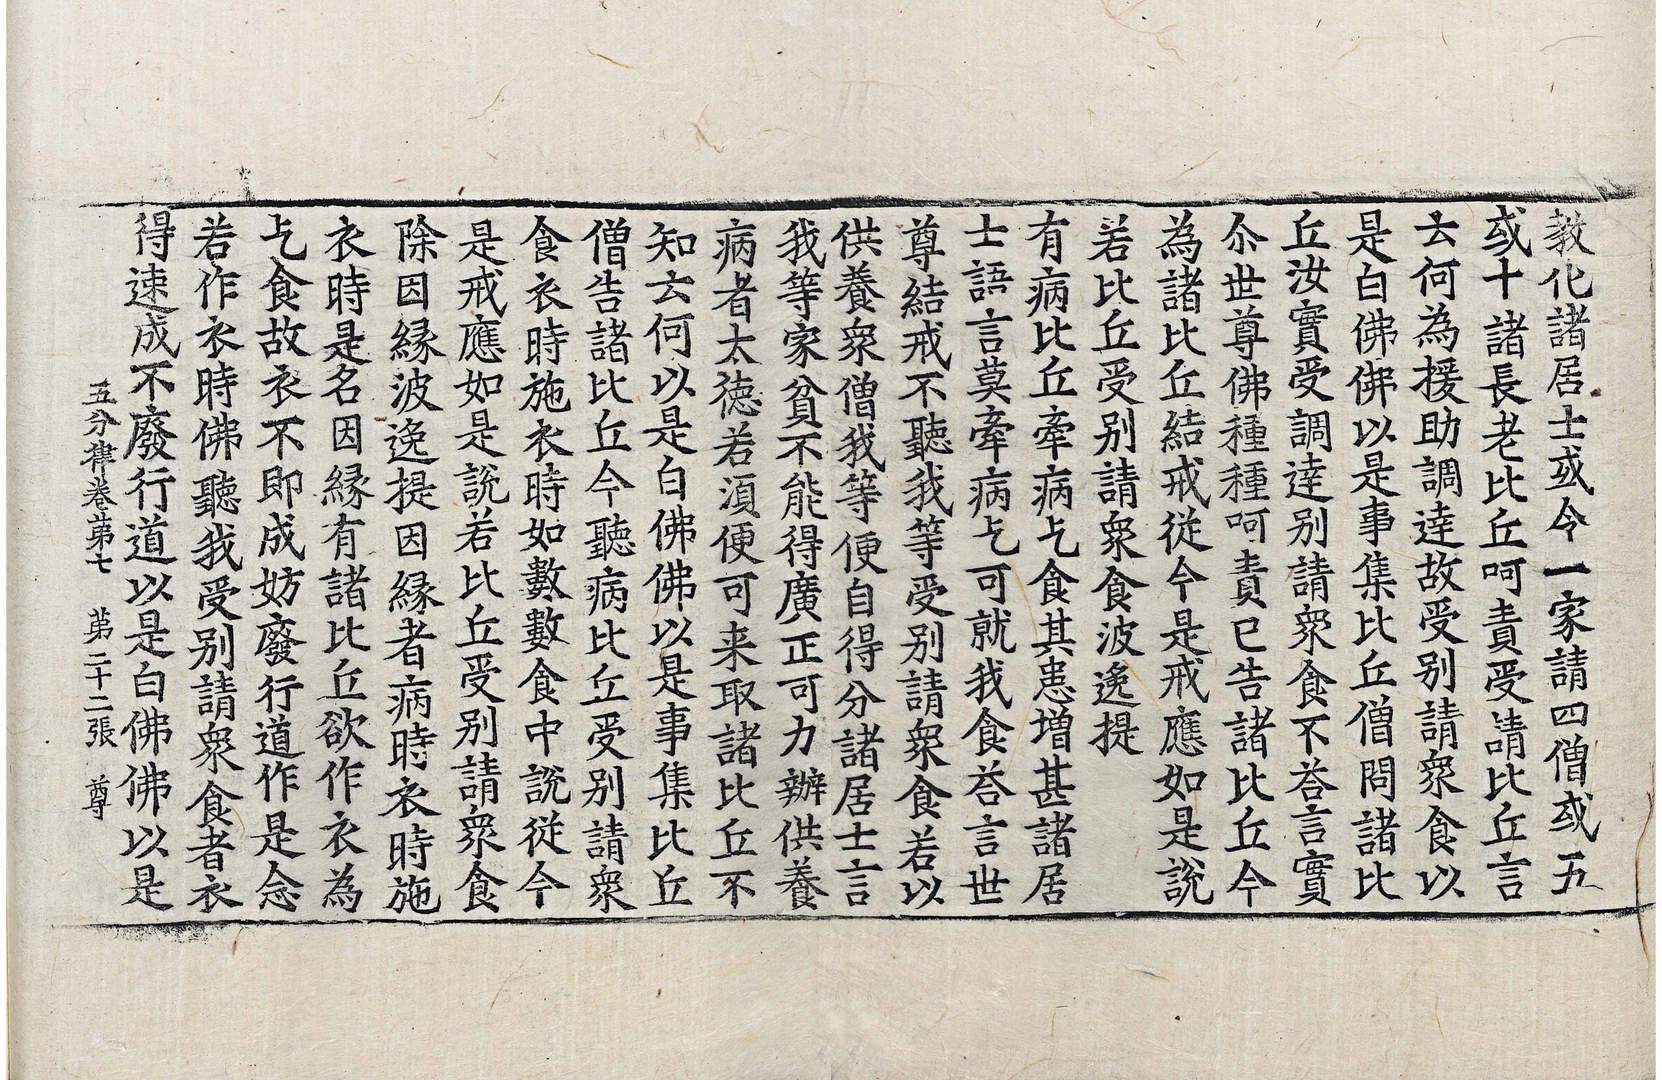 教化諸居士或令一家請四僧或五
或十諸長老比丘呵責受請比丘言
云何為援助調達故受别請衆食以
是白佛佛以是事集比丘僧問諸比
丘汝實受調達别請衆食不荅言實
尒世尊佛種種呵責已告諸比丘今
為諸比丘結戒從今是戒應如是說
若比丘受别請衆食波逸提
有病比丘牽病乞食其患增甚諸居
士語言莫牽病乞可就我食荅言世
尊結戒不聽我等受别請衆食若以
供養衆僧我等便自得分諸居士言
我等家貧不能得廣正可力辦供養
病者太德若湏便可来取諸比丘不
知云何以是白佛佛以是事集比丘
僧告諸比丘今聽病比丘受别請衆
食衣時施衣時如數數食中說從今
是戒應如是說若比丘受别請衆食
除因縁波逸提因縁者病時衣時施
衣時是名因縁有諸比丘欲作衣為
乞食故衣不即成妨廢行道作是念
若作衣時佛聽我受别請衆食者衣
得速成不廢行道以是白佛佛以是
五分律卷第七　第二十二張　尊